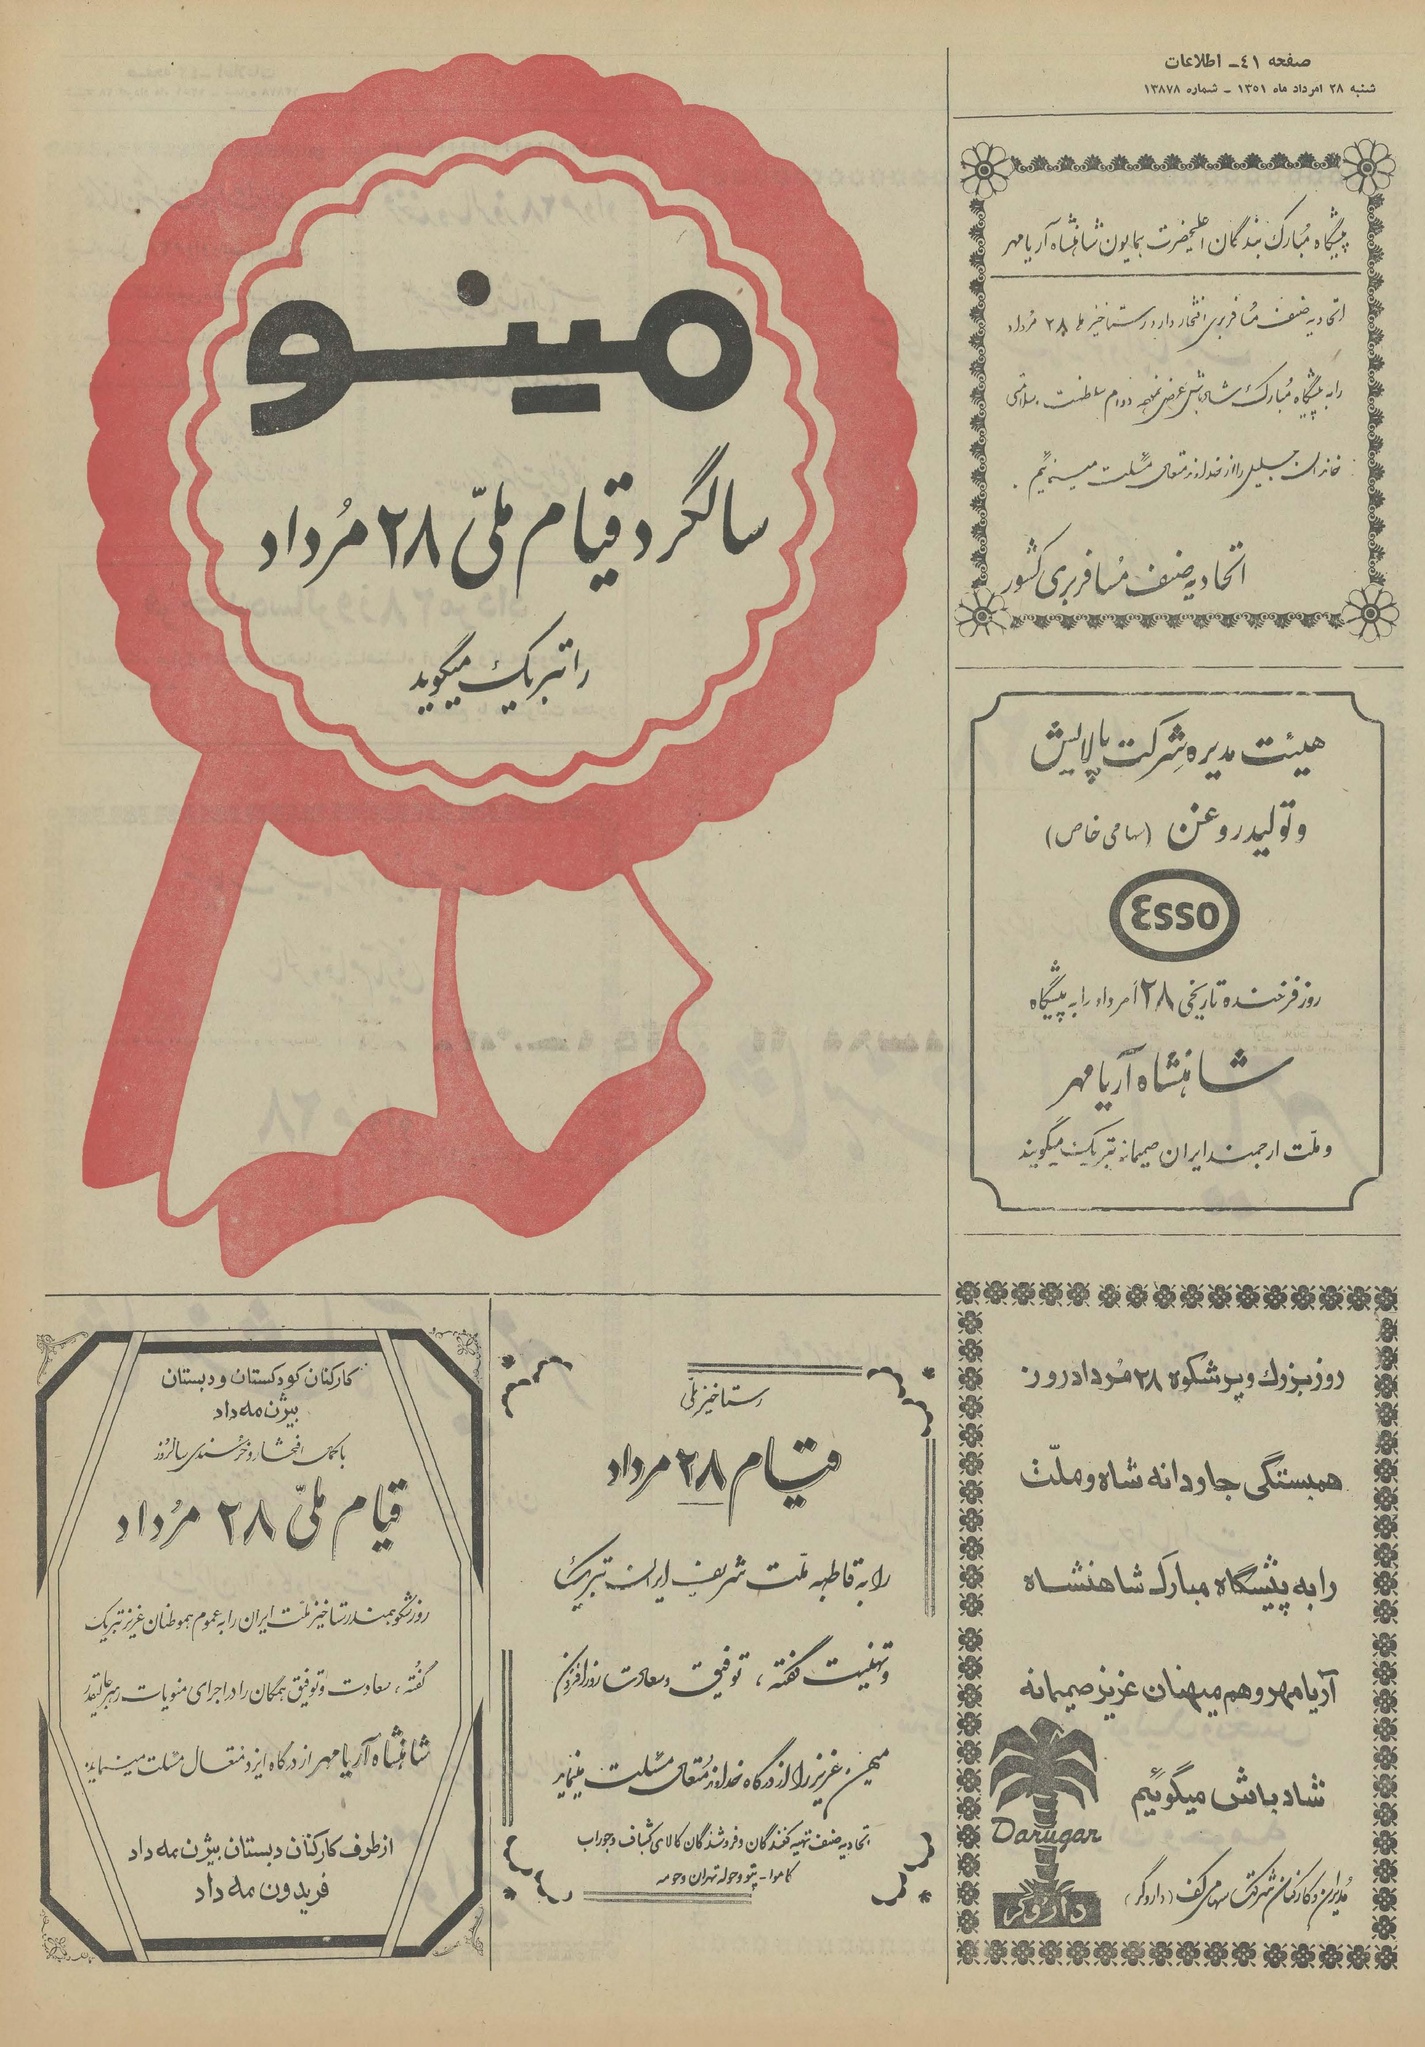 صفحه ٤١ـ اطلاعات
شنبه ۲۸ امرداد ماه ۱۳۵۱ - شماره ۱۳۸۷۸
پیشگاه مبارک بندگان اعلیحضرت همایون شاهنشاه آریامهر
اتحادیه صنف مسافربری افتخار دارد رستاخیز ملی ۲۸ مرداد
را به پیشگاه مبارک شاهنشاهش عرض نموده دوام سلطنت و سلامتی
خاندان جلیل را از خداوند متعال مسئلت مینمائیم .
اتحادیه صنف مسافربری کشور
هیئت مدیره شرکت پالایش
و تولید روغن (سهامی خاص)
Esso
روز فرخنده تاریخی ۲۸ امرداد را به پیشگاه
شاهنشاه آریامهر
و ملّت ارجمند ایران صمیمانه تبریک میگویند
روز بزرگ و پرشکوه ۲۸ مُرداد روز
همبستگی جاودانه شاه و ملّت
را به پیشگاه مبارک شاهنشاه
آریامهر و هم میهنان عزیز صمیمانه
شادباش میگوئیم
Darugar
داروگر
مدیران و کارکنان شرکت سهامی کف (داروگر)
مینو
سالگرد قیام ملّی ۲۸ مُرداد
را تبریک میگوید
رستاخیز ملّی
قیام ۲۸ مرداد
را به قاطبه ملّت شریف ایران تبریک
و تهنیت گفته ، توفیق و سعادت روزافزون
میهن عزیز را از درگاه خداوند مُتعال مسئلت مینماید
اتحادیه صنف تهیه کنندگان و فروشندگان کالای کشباف و جوراب
کاموا - پتو و حوله تهران و حومه
کارکنان کودکستان و دبستان
بیژن مه داد
با کمال افتخار و خُرسندی سالروز
قیام ملّی ۲۸ مُرداد
روز شکوهمند رستاخیز ملّت ایران را به عموم هموطنان عزیز تبریک
گفته ، سعادت و توفیق همگان را در اجرای منویات رهبر عالیقدر
شاهنشاه آریامهر از درگاه ایزد متعال مسئلت مینمایند
از طرف کارکنان دبستان بیژن مه داد
فریدون مه داد